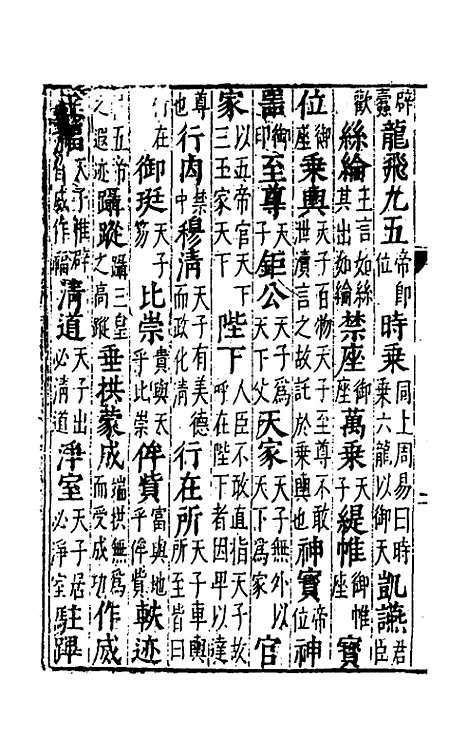 辟龍飛九五帝即位時乘同上周易曰時乘六龍以御天凱讌君臣
歡絲綸王言如絲其出如綸禁座御座萬乘天子緹帷御帷座寶
位御座乘輿天子百物天子至尊不敢渫瀆言之故託於乘輿也神寶帝位神
器御印至尊天子鉅公天子爲天下父天家天子無外以天下爲家官
家以五帝官天下三王家天下陛下人臣不敢直指天子故呼在陛下者因卑以達
尊也行内禁中穆清天子有美德而政化清行在所天子車輿所至皆曰
行在御珽天子笏比崇貴與天乎比崇侔貲富與地乎侔貲軼迹
五帝之遐迹躡蹤躡三皇之高蹤垂拱蒙成端拱無爲而受成功作威
天子惟辟威作福清道天子出必清道淨室天子居必淨室駐蹕